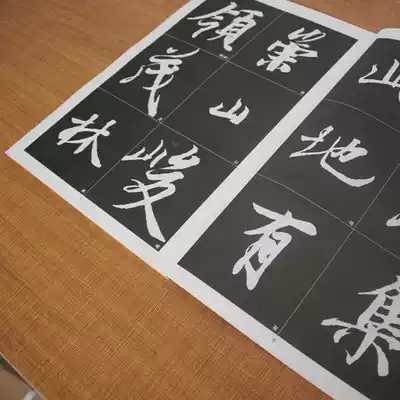 集
此地有
崇山峻
領茂林